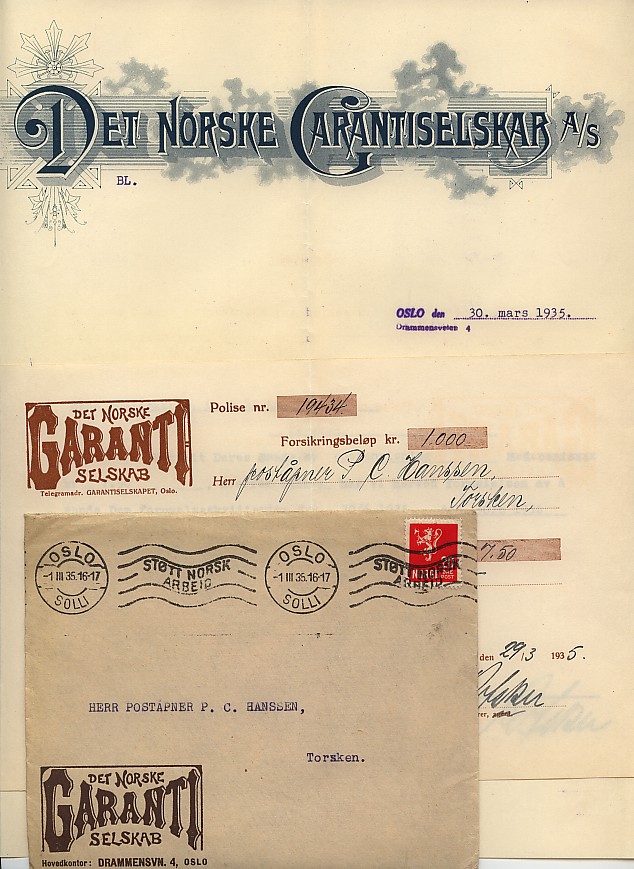 DET NORSKE GARANTISELSKAB A/S
BL.
OSLO den 30. mars 1935.
Drammensveien 4
DET NORSKE
GARANTI
SELSKAB
Telegramadr. GARANTISELSKAPET, Oslo.
Polise nr. 19434
Forsikringsbeløp kr. 1.000
Herr poståpner P. C. Hanssen,
Torsken,
7.50
den 29/3 1935.
OSLO
-1 III 35.16-17
SOLLI
STØTT NORSK
ARBEID
OSLO
-1 III 35.16-17
SOLLI
STØTT NORSK
ARBEID
NORGE
HERR POSTÅPNER P. C. HANSSEN,
Torsken.
DET NORSKE
GARANTI
SELSKAB
Hovedkontor: DRAMMENSVN. 4, OSLO